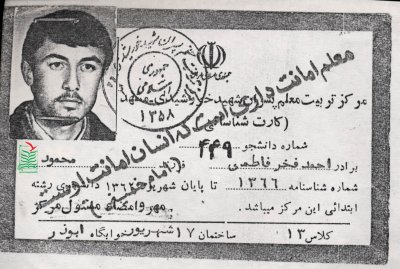 جمهوری اسلامی
۱۳۵۸
معلم امانت داری است که انسان امانت اوست
(امام خمینی)
مرکز تربیت معلم پسران شهید خورشیدی-مشهد
(کارت شناسائی)
شماره دانشجو ۴۴۹
برادر احمد فخر فاطمی فرزند محمود
شماره شناسنامه ۱۳۶۶ تا پایان شهریور ۱۳۶۲ دانشجوی رشته
ابتدائی این مرکز میباشد. مهر و امضاء مسئول مرکز
کلاس ۱۳ ساختمان ۱۷ شهریور خوابگاه ابوذر